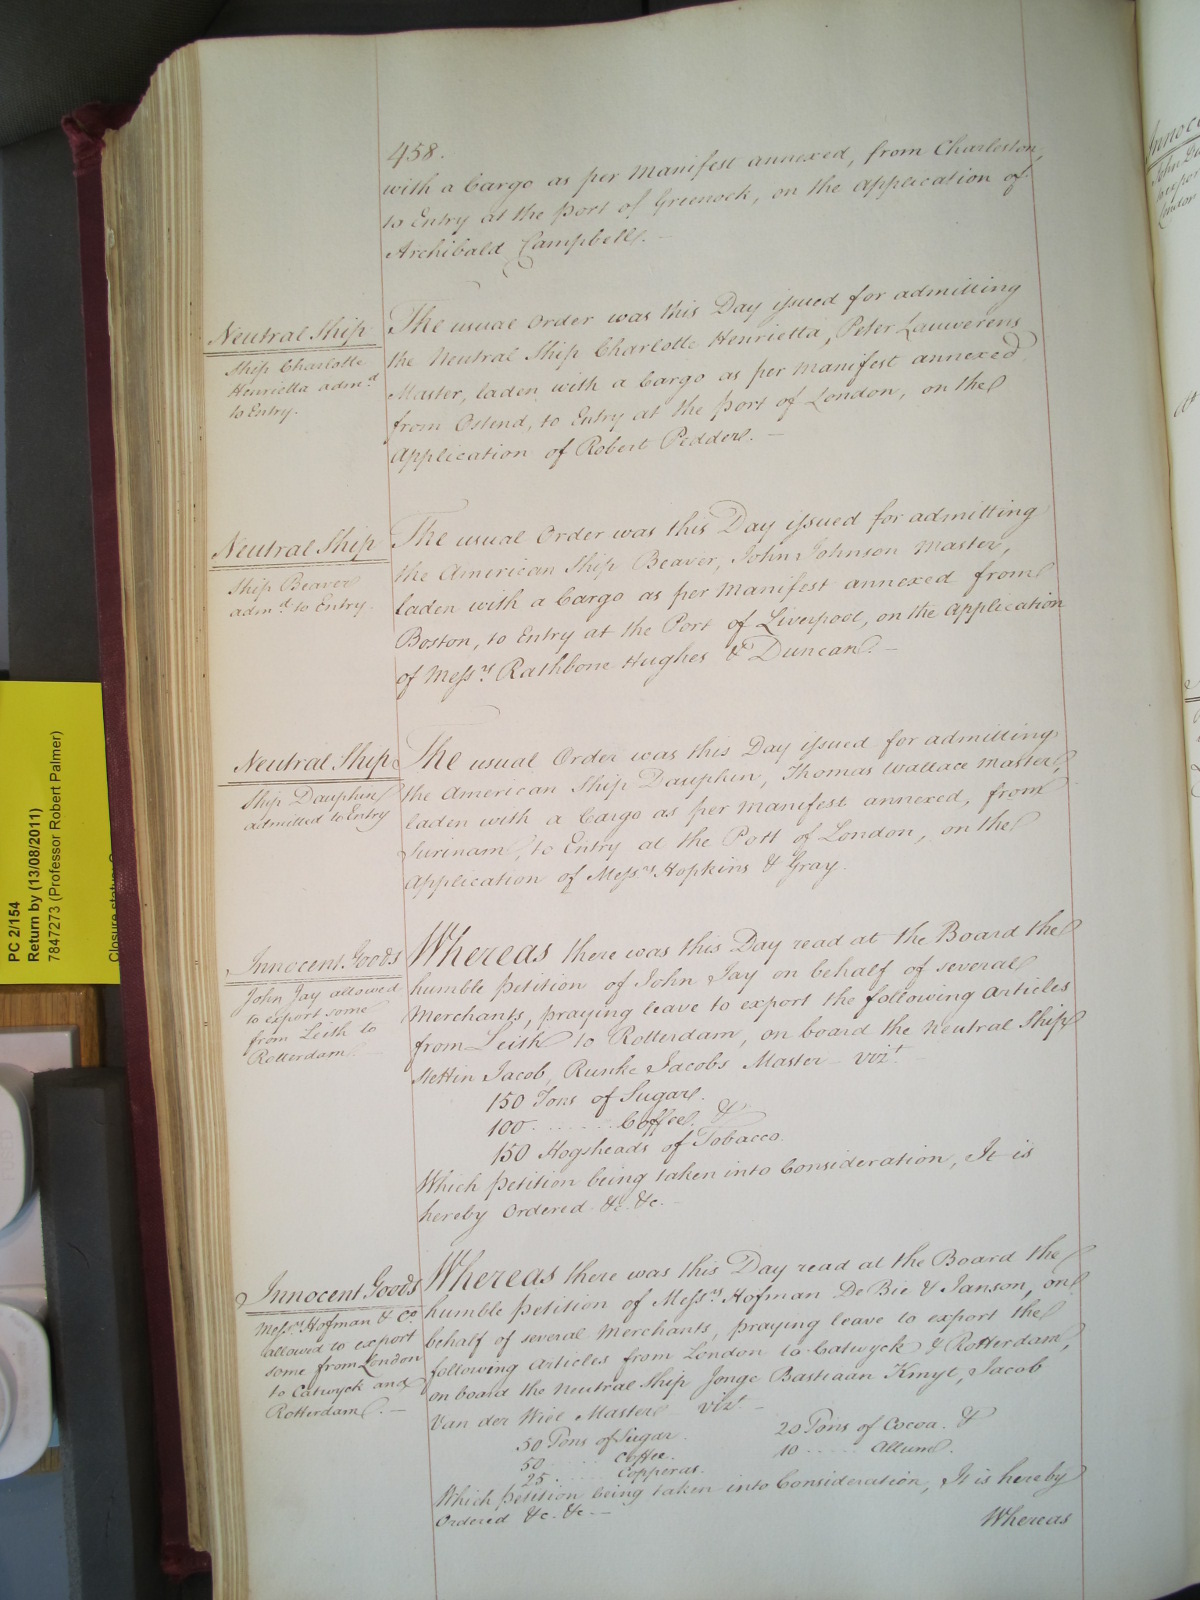 458.
with a Cargo as per Manifest annexed, from Charleston,
to Entry at the Port of Greenock, on the Application of
Archibald Campbell. —
Neutral Ship
Ship Charlotte
Henrietta adm.d
to Entry.
The usual Order was this Day issued for admitting
the Neutral Ship Charlotte Henrietta, Peter Lauwerens
Master, laden with a Cargo as per Manifest annexed
from Ostend, to Entry at the Port of London, on the
Application of Robert Pedder. —
Neutral Ship
Ship Beaver
adm.d to Entry.
The usual Order was this Day issued for admitting
the American Ship Beaver, John Johnson Master,
laden with a Cargo as per Manifest annexed from
Boston, to Entry at the Port of Liverpool, on the Application
of Mess.rs Rathbone Hughes & Duncan. —
Neutral Ship
Ship Dauphin
admitted to Entry
The usual Order was this Day issued for admitting
the American Ship Dauphin, Thomas Wallace Master,
laden with a Cargo as per Manifest annexed, from
Surinam, to Entry at the Port of London, on the
Application of Mess.rs Hopkins & Gray.
Innocent Goods
John Jay allowed
to export some
from Leith to
Rotterdam. —
Whereas there was this Day read at the Board the
humble Petition of John Jay on behalf of several
Merchants, praying leave to export the following Articles
from Leith to Rotterdam, on board the Neutral Ship
Stettin Jacob, Runke Jacobs Master — viz.t
150 Tons of Sugar.
100 ........ Coffee. &
150 Hogsheads of Tobacco.
Which Petition being taken into Consideration, It is
hereby Ordered &c. &c. —
Innocent Goods
Mess.rs Hofman & Co.
allowed to export
some from London
to Catwyck and
Rotterdam. —
Whereas there was this Day read at the Board the
humble Petition of Mess.rs Hofman De Bie & Janson, on
behalf of several Merchants, praying leave to export the
following Articles from London to Catwyck & Rotterdam,
on board the Neutral Ship Jonge Bastiaan Kmyt, Jacob
Van der Wiel Master — viz.t —
50 Tons of Sugar.
50 ........ Coffee.
25 ........ Copperas.
20 Tons of Cocoa. &
10 ...... Allum.
Which Petition being taken into Consideration, It is hereby
Ordered &c. &c. —
Whereas
PC 2/154
Return by (13/08/2011)
7847273 (Professor Robert Palmer)
Closure